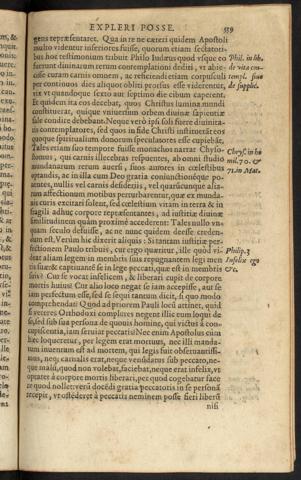 EXPLERI POSSE. 539
gens repræsentaret. Qua in re ne cæteri quidem Apostoli
multo videntur inferiores fuisse, quorum etiam sectatori-
bus hoc testimonium tribuit Philo Iudæus quod vsque eo
fuerunt diuinarum rerum contemplationi dediti, vt abie-
cisse curam carnis omnem, ac reficiendi etiam corpusculi
per continuos dies aliquot obliti prorsus esse viderentur,
vix vt quandoque sexto aut septimo die cibum caperent.
Et quidem ita eos decebat, quos Christus lumina mundi
constituerat, quique vniuersum orbem diuinæ sapientiæ
sale condire debebant. Neque vero ipsi soli fuere diuinita-
tis contemplatores, sed quos in fide Christi instituerāt eos
quoque spiritualium donorum speculatores esse cupiebāt.
Tales etiam suo tempore fuisse monachos narrat Chryso-
stomus, qui carnis illecebras respuentes, ab omni studio
mundanarum rerum auersi, suos auctores in cœlestibus
optandis, ac in illa cum Deo pratia coniunctiōnesque po-
nentes, nullis vel carnis desideriis, vel quarūcunque alia-
rum affectionum motibus perturbarentur, quæ ex munda-
nis curis excitari solent, sed cœlestium vitam in terra & in
fragili adhuc corpore repræsentantes, ad iustitiæ diuinæ
similitudinem quàm proximè accederent: Tales nullo vn-
quam seculo defuisse, ac ne nunc quidem deesse creden-
dum est. Verùm hic dixerit aliquis: Si tantam iustitiæ per-
fectionem Paulo tribuis, cur ergo queritur, ille quod vi-
deat aliam legem in membris suis repugnantem legi men
tis suæ & captiuansē se in lege peccati, quæ est in membris
suis? Cur se vocat infelicem, & liberari cupit de corpore
mortis huius? Cur alio loco negat se iam accepisse, aut se
iam perfectum esse, sed se sequi tantum dicit, si quo modo
comprehendat? Quod ad priorem Pauli locū attinet, quidā
è veteres Orthodoxi complures negent illic eum loqui de
se, sed sub sua persona de quouis homine, qui victus à con-
cupiscentia, iam seruiat peccatis? Nec enim Apostolus cùm
hæc loqueretur, per legem erat mortuus, nec illi manda-
tum inuentum est ad mortem, qui legis fuit obseruantissi-
mus, neq; carnalis erat, neque venundatus sub peccato, ne-
que malū, quod non volebat, faciebat, neque erat infelix, vt
optaret à corpore mortis liberari, per quod cogebatur facē
re quod nollet: verū docēdi gratia peccatoris in se personā
recepit, vt ostēderet à peccatis neminem posse fieri liberū
nisi
Phil. in lib.
de vita con-
templ. siue
de supplic.
Chrys. in ho
mil. 70. &
71. in Mat.
Philip. 3
Infelix ego
&c.